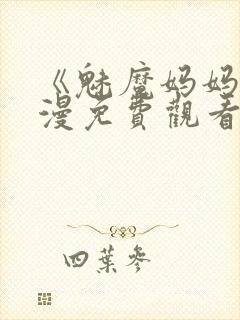 《魅魔妈妈
漫免费觀看
四葉參